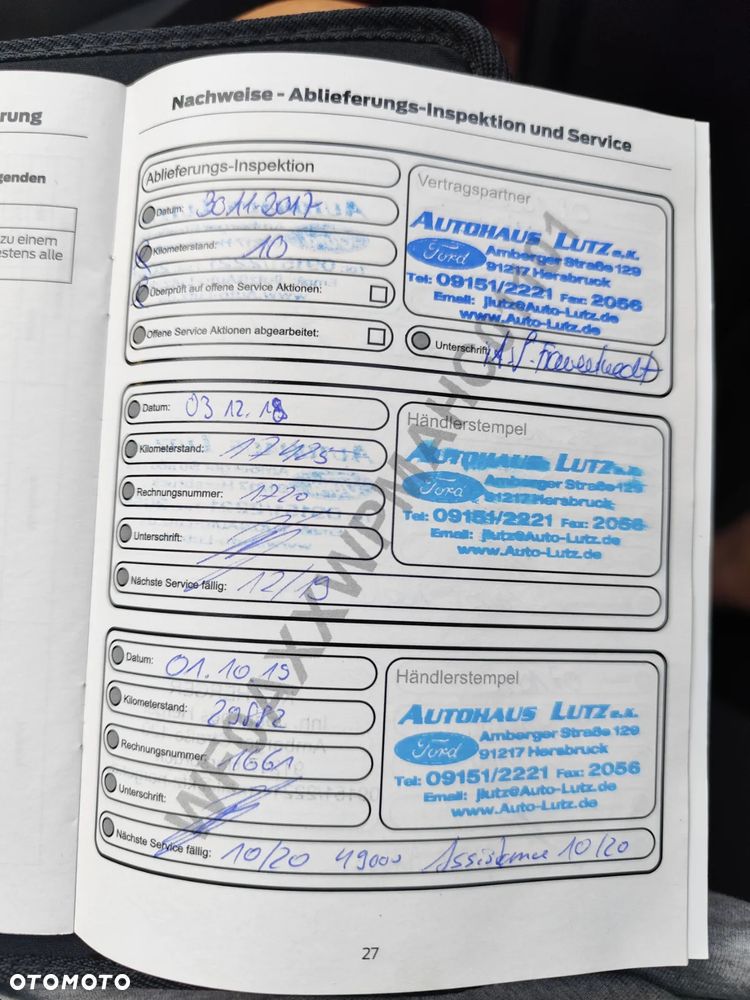 rung
genden
zu einem
estens alle
Nachweise - Ablieferungs-Inspektion und Service
Ablieferungs-Inspektion
Datum: 30.11.2017
Kilometerstand: 10
Überprüft auf offene Service Aktionen:
Offene Service Aktionen abgearbeitet:
Vertragspartner
AUTOHAUS LUTZ e.K.
Ford
Amberger Straße 129
91217 Hersbruck
Tel: 09151/2221 Fax: 2056
Email: jlutz@Auto-Lutz.de
www.Auto-Lutz.de
Unterschrift:
Datum: 03 12. 18
Kilometerstand: 17425
Rechnungsnummer: 1720
Unterschrift:
Nächste Service fällig: 12/19
Händlerstempel
AUTOHAUS LUTZ e.K.
Ford
Amberger Straße 129
91217 Hersbruck
Tel: 09151/2221 Fax: 2056
Email: jlutz@Auto-Lutz.de
www.Auto-Lutz.de
Datum: 01. 10 19
Kilometerstand: 29882
Rechnungsnummer: 1661
Unterschrift:
Nächste Service fällig: 10/20 49000 Assistance 10/20
Händlerstempel
AUTOHAUS LUTZ e.K.
Ford
Amberger Straße 129
91217 Hersbruck
Tel: 09151/2221 Fax: 2056
Email: jlutz@Auto-Lutz.de
www.Auto-Lutz.de
27
OTOMOTO